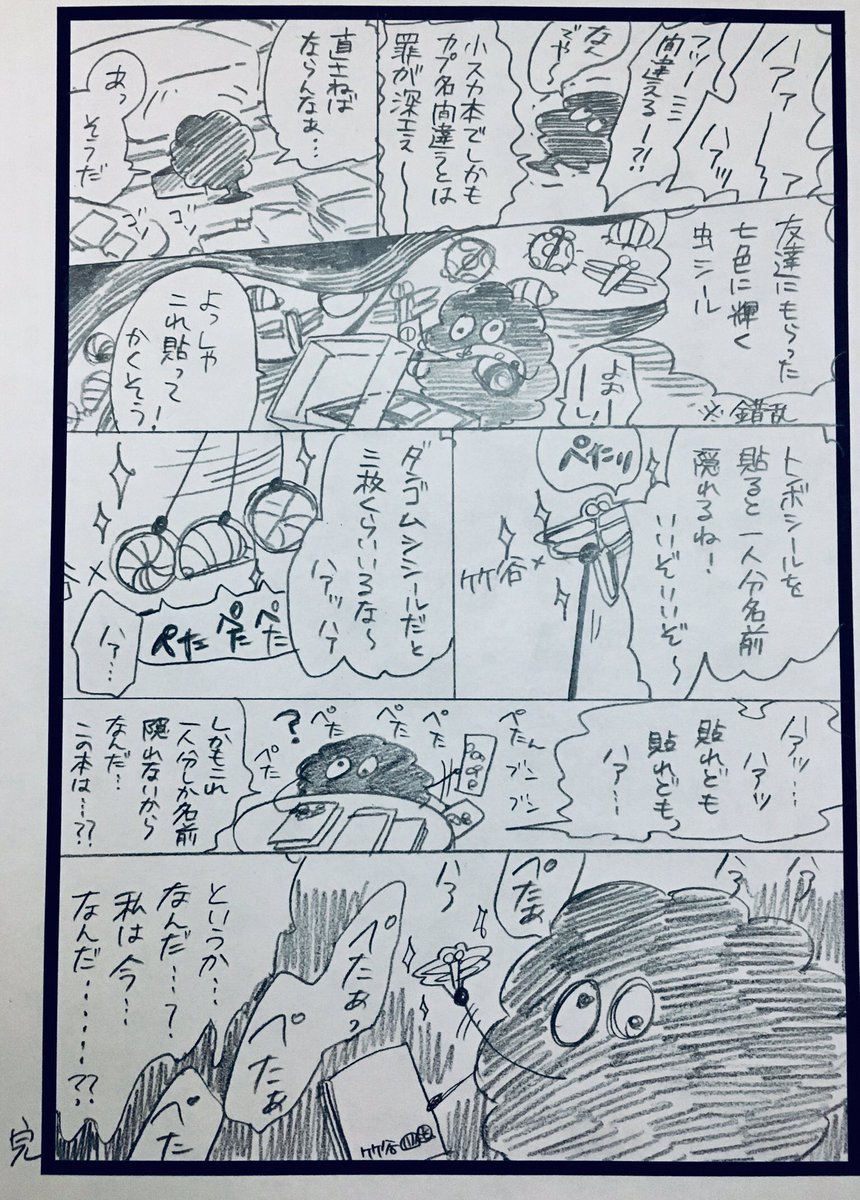 ハアァーーァ
ハアッ
フツー
間違える〜?!
なん
でや〜
小スカ本でしかも
カプ名間違うとは
罪が深エス
直さねば
ならんなぁ…
あっ
そうだ
ゴソ
ゴソ
友達にもらった
七色に輝く
虫シール
※錯乱
よぉー
しー!
よっしゃ
これ貼って
かくそう!
トンボシールを
貼ると一人分名前
隠れるね!
いいぞいいぞ〜
ぺたり
竹谷×
ダンゴムシシールだと
三枚くらいいるな〜
ハアッハァ
ぺた
ぺた
ぺた
谷×
ハァ…
ハアッ…
ハアッ
貼れども
貼れどもっ
ハァ…
ぺたん
ブン
ブン
ぺた
ぺた
ぺた
ぺた
?
しかもこれ
一人分しか名前
隠れないから
なんだ…
この本は…??
ハァ
ハァ
ぺたぁ
ハァ
ハァ
ぺたぁっ
ぺたぁ
ぺた
竹谷
というか…
なんだ…?
私は今…
なんだ……??
完